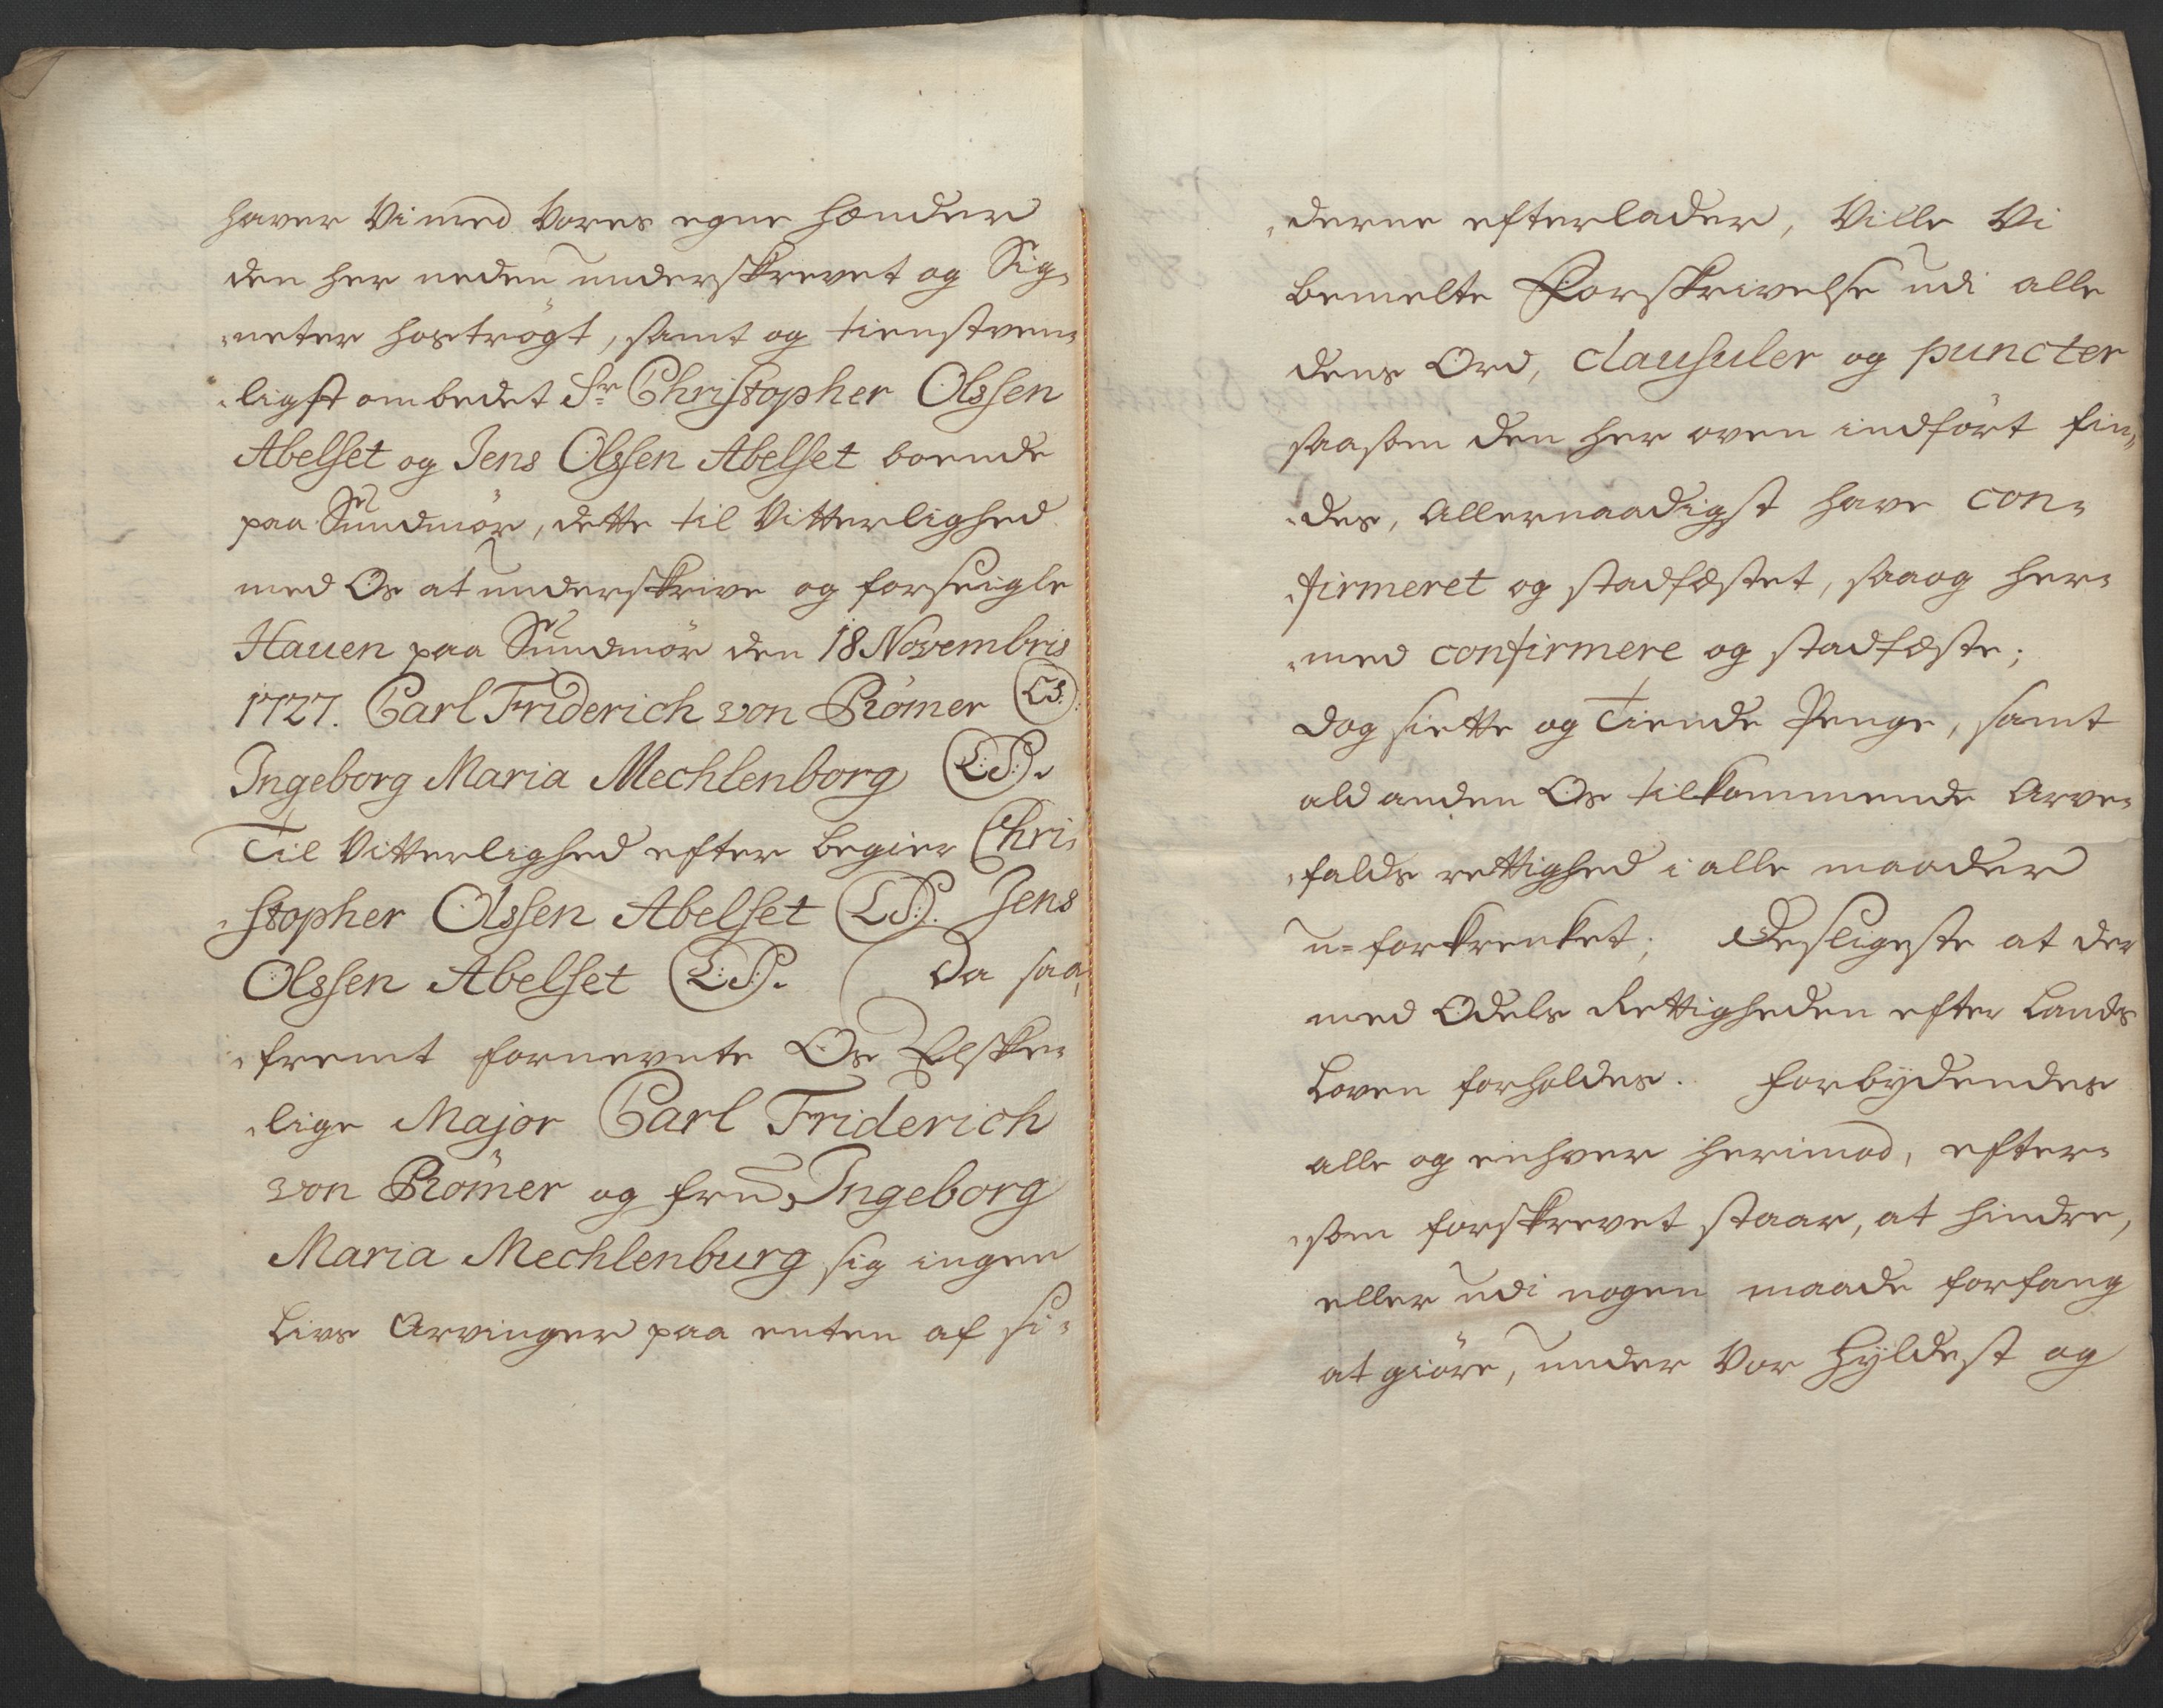 haver Vi med Vores egne hænder
den her neden underskrevet og Sig-
neter hoströgt, samt og tienstven-
ligst ombedet Sr Christopher Olssen
Abelset og Jens Olssen Abelset boende
paa Sundmör, dette til Vitterlighed
med Os at underskrive og forseigle
Hauen paa Sundmör den 18 Novembris
1727. Carl Friderich von Römer (LS.)
Ingeborg Maria Mechlenborg (L:S:).
Til Vitterlighed efter begier Chri-
stopher Olssen Abelset (L:S:). Jens
Olssen Abelset (L:S:). Da saa-
fremt fornevnte Os Elske-
lige Major Carl Friderich
von Römer og Frue Ingeborg
Maria Mechlenburg sig ingen
Livs Arvinger paa enten af si-
derne efterlader, Ville Vi
bemelte Forskrivelse udi alle
dens Ord, Clausuler og puncter
saasom den her oven indfört fin-
des, Allernaadigst have con-
firmeret og stadfæstet, saa og her-
med confirmere og stadfæste;
Dog siette og Tiende Penge, samt
ald anden Os tilkommende Arve-
falds rettighed i alle maader
u-forkrenket; Desligeste at der
med Odels Rettigheden efter Lands
Loven forholdes. Forbydendes
alle og enhver herimod, efter-
som forskrevet staar, at hindre,
eller udi nogen maade forfang
at giöre, under Vor Hyldest og